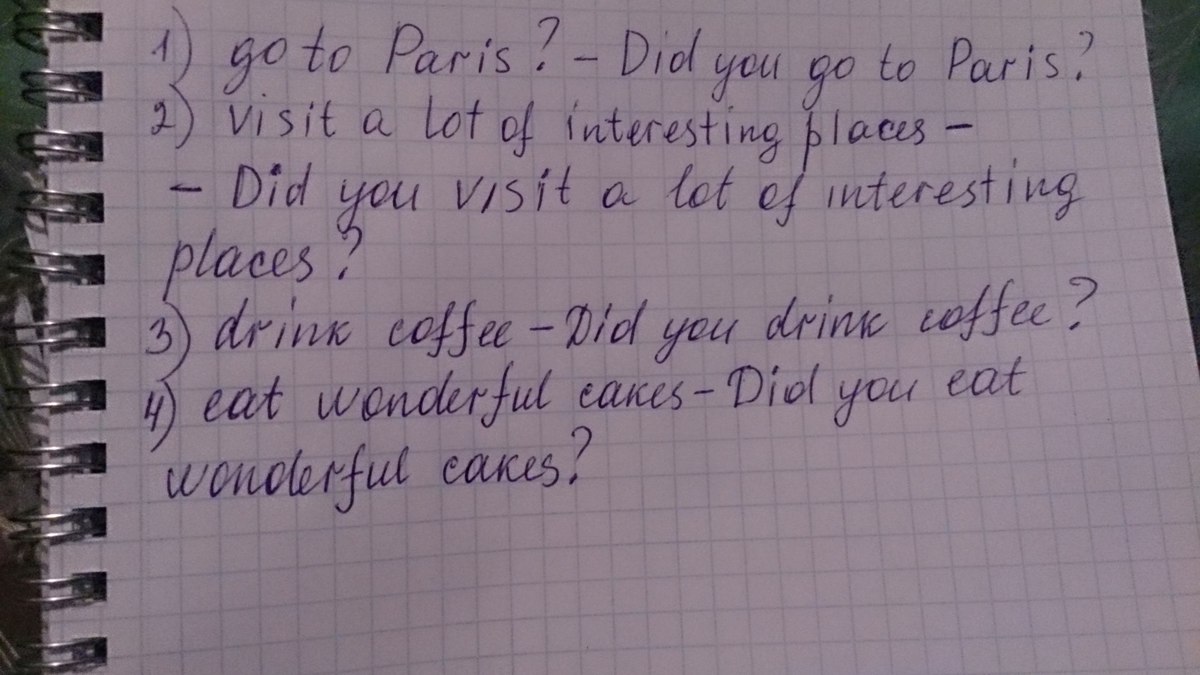 1) go to Paris? - Did you go to Paris?
2) visit a lot of interesting places -
- Did you visit a lot of interesting
places?
3) drink coffee - Did you drink coffee?
4) eat wonderful cakes - Did you eat
wonderful cakes?